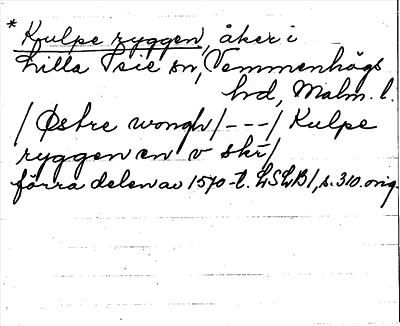 * Kulpe ryggen, åker i
Lilla Isie sn, Vemmenhögs
hd, Malm. l.
/ Østre wongh / - - - / Kulpe
ryggen en v skr /
förra delen av 1570-t. LSLB 1, s. 310. orig.